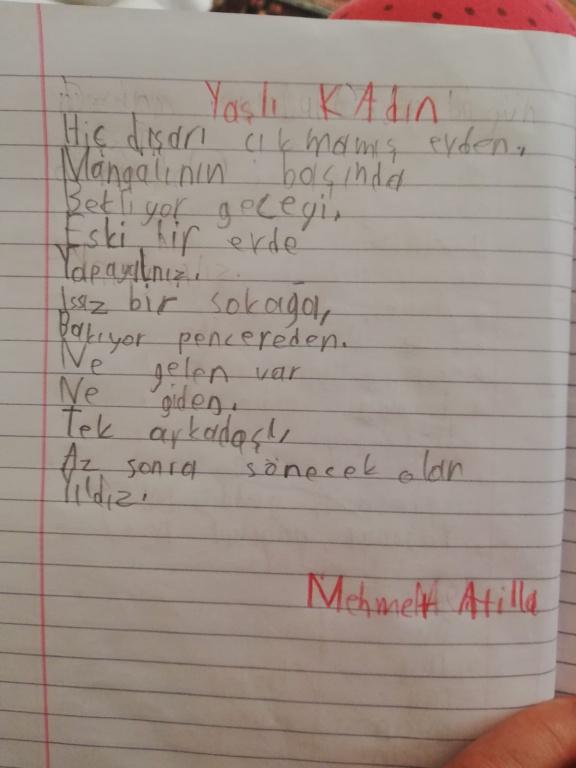 Yaşlı KAdın
Hiç dışarı çıkmamış evden,
Mangalının başında
Bekliyor geceyi,
Eski bir evde
Yapayalnız.
Issız bir sokağa,
Bakıyor pencereden.
Ne gelen var
Ne giden,
Tek arkadaşı,
Az sonra sönecek olan
Yıldız.
Mehmet Atilla